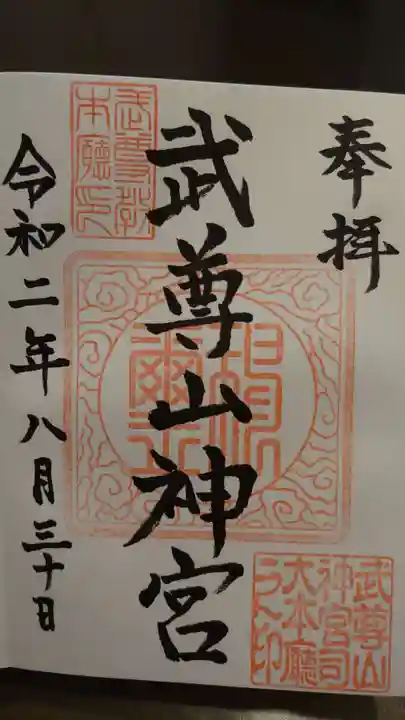 奉拝
武尊山神宮
令和二年八月三十日
武尊教
本廳印
武尊山
神宮司
大本廳